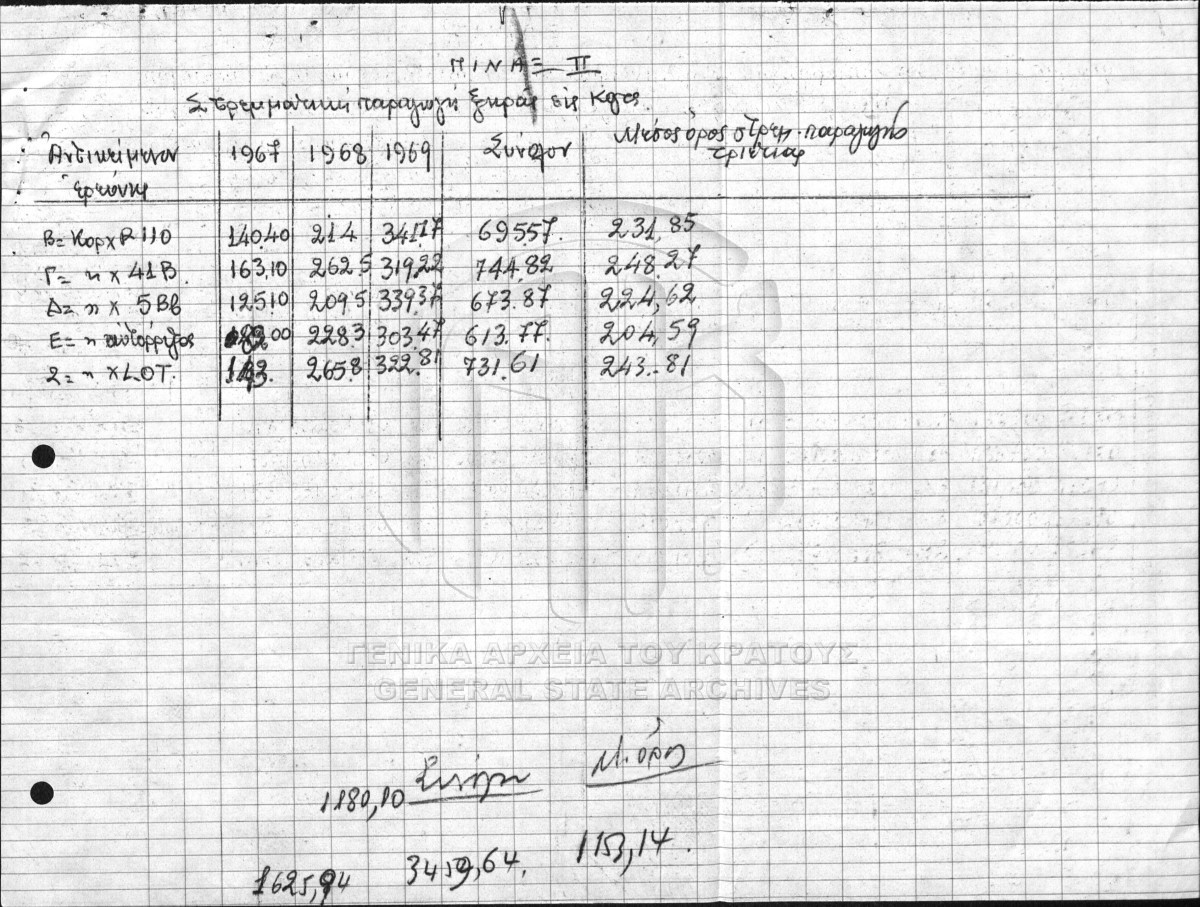 ΠΙΝΑΞ II
Στρεμματική παραγωγή ξηράς εις Κgrs
Αντικείμενον 1967 1968 1969 Σύνολον Μέσος όρος στρεμ. παραγωγής
Ερεύνης τριετίας
Β= Κορ x R 110 140.40 214 341.17 695.57. 231,85
Γ= " x 41 B. 163,10 262.5 319.22 744.82 248.27
Δ= " x 5 BB 125.10 209.5 339.37 673.87 224,62
Ε= " αυτόρριζος 82.00 228.3 303.47 613.77. 204,59
Ζ= " x LOT. 143. 265.8 322.81 731.61 243.81
ΓΕΝΙΚΑ ΑΡΧΕΙΑ ΤΟΥ ΚΡΑΤΟΥΣ
GENERAL STATE ARCHIVES
Μ. όρος
1180,10 Σύνολον
1153,14.
1625,94 3459,64.